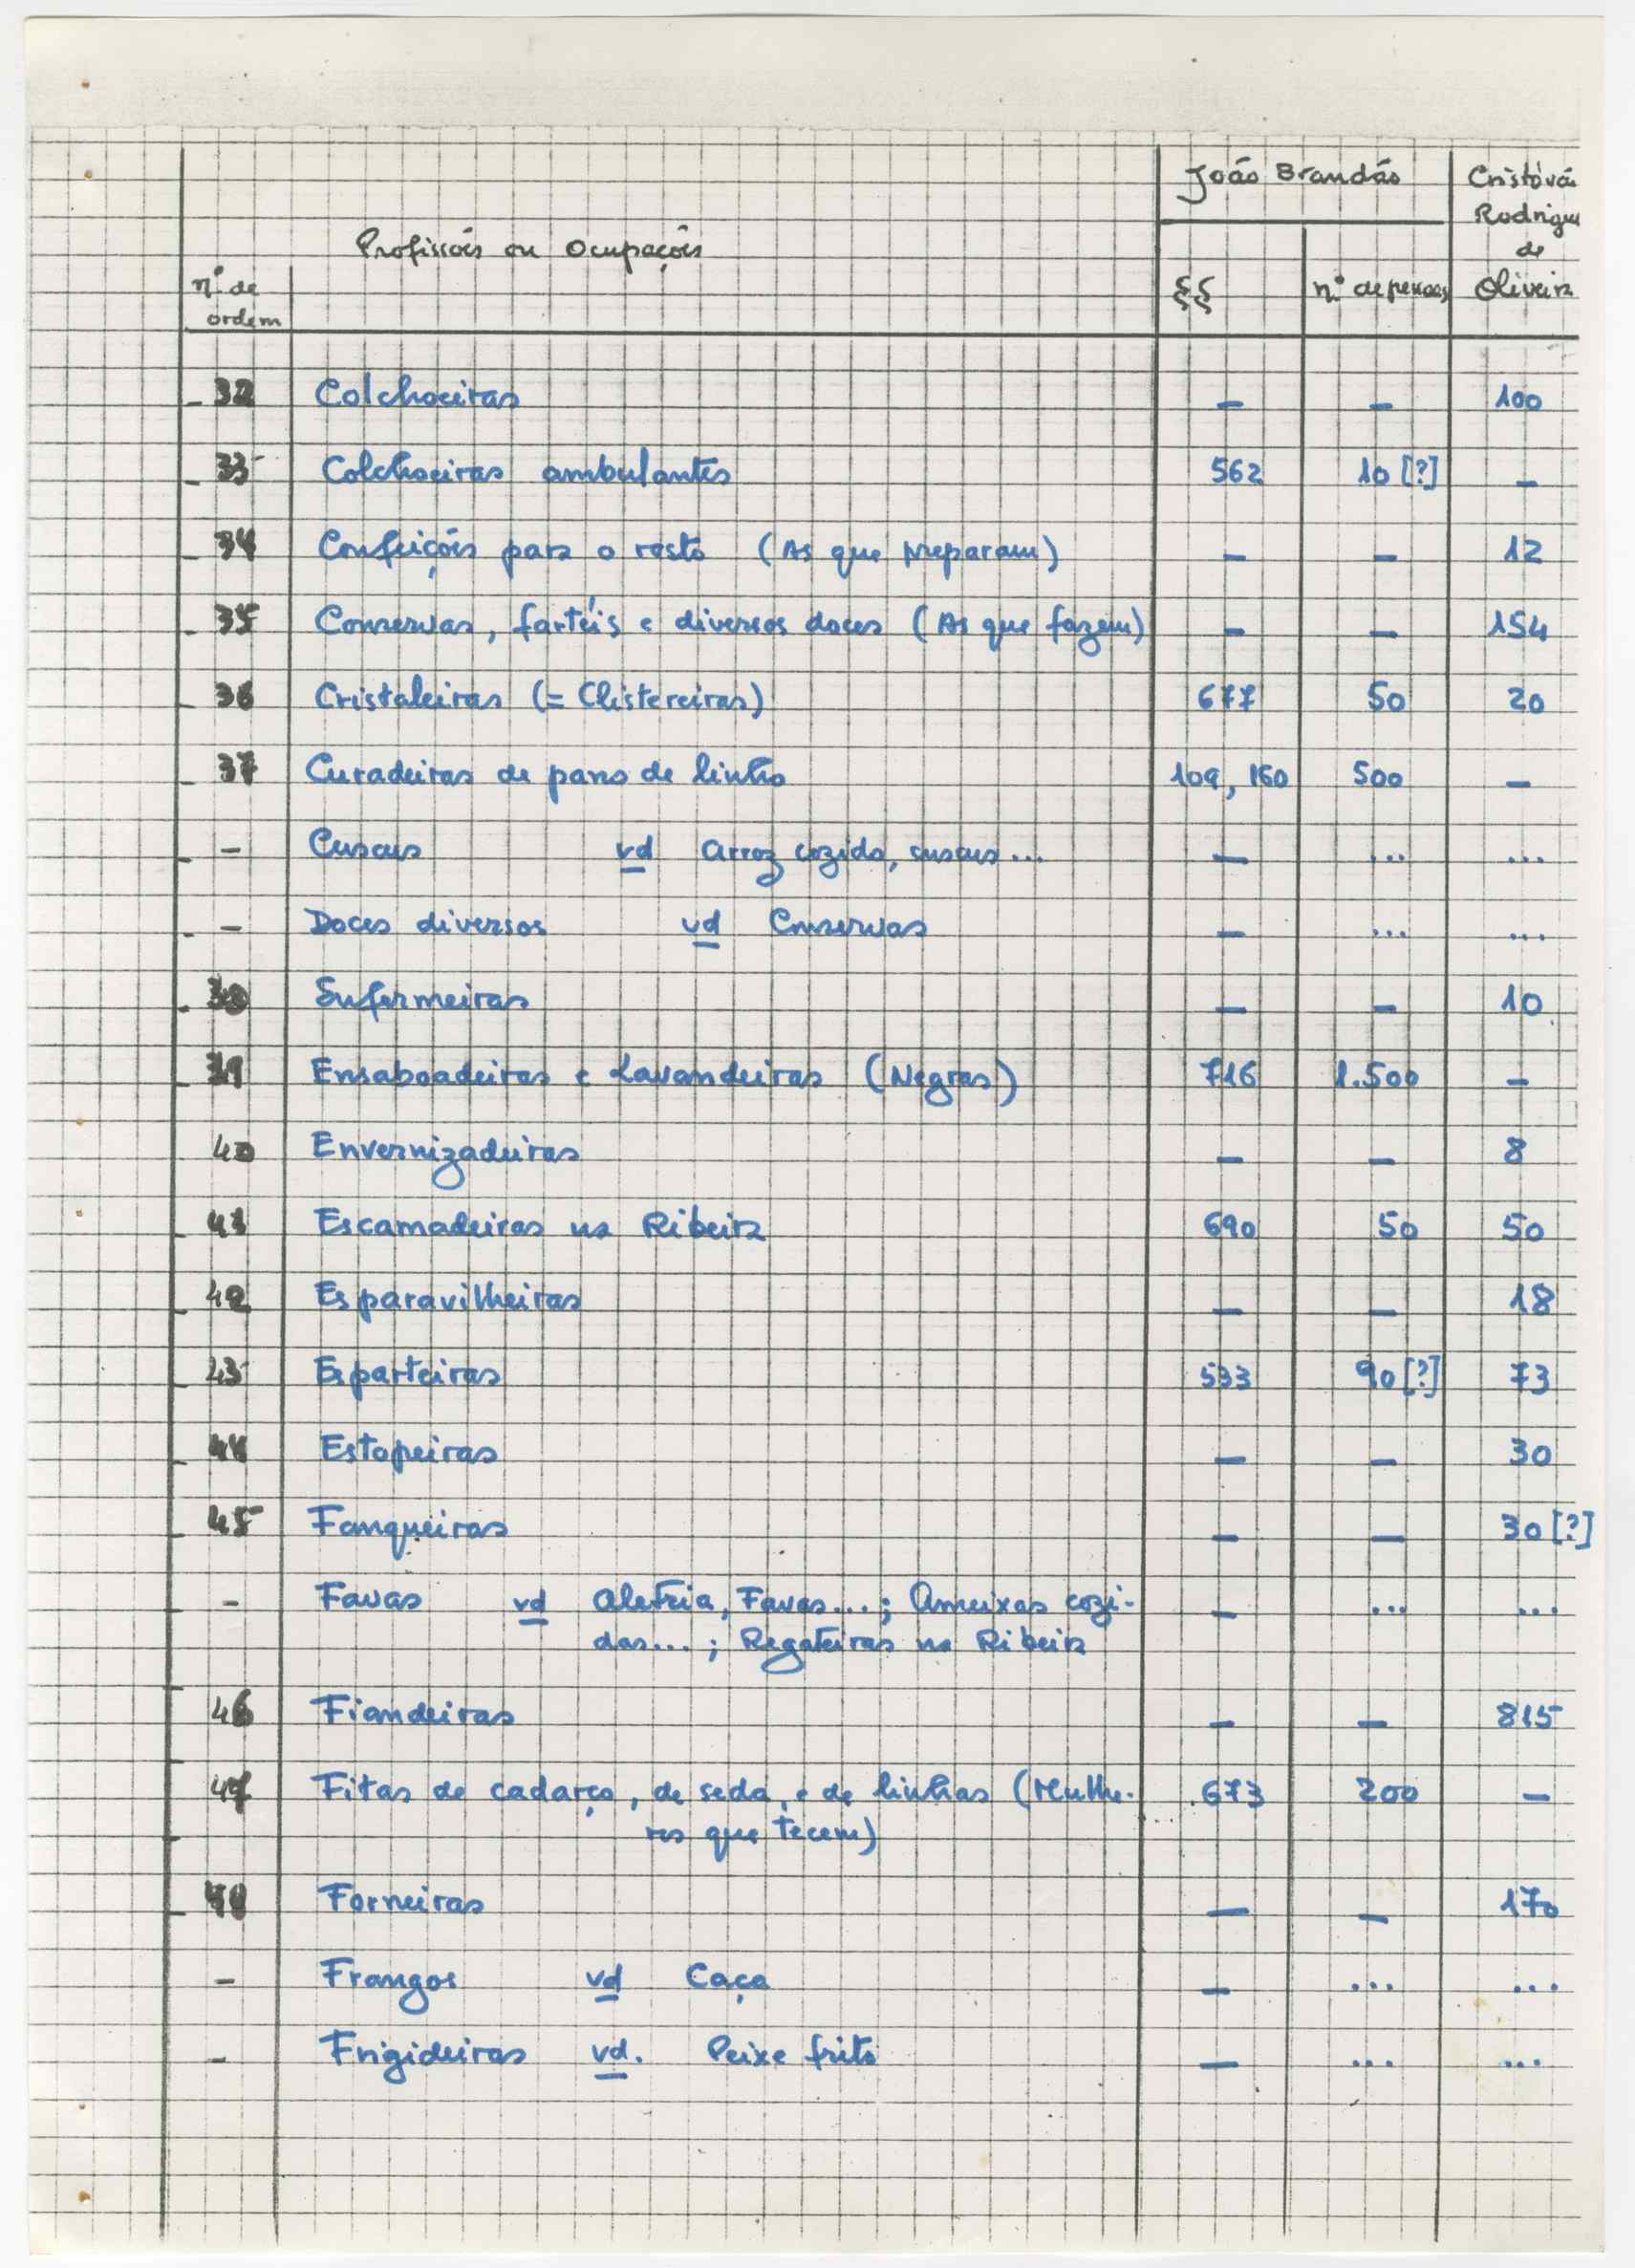 João Brandão Cristóvã
Rodrigu
Profissões ou Ocupações de
nº de §§ nº de pessoas Oliveira
ordem
32 Colchoeiras — — 100
33 Colchoeiras ambulantes 562 10 [?] —
34 Confeições para o rosto (As que preparam) — — 12
35 Conservas, fartéis e diversos doces (As que fazem) — — 154
36 Cristaleiras (= Clistereiras) 677 50 20
37 Curadeiras de pano de linho 109, 160 500 —
— Cuscus vd Arroz cozido, cuscus... — ... ...
— Doces diversos vd Conservas — ... ...
38 Enfermeiras — — 10
39 Ensaboadeiras e Lavandeiras (Negras) 716 1.500 —
40 Envernizadeiras — — 8
41 Escamadeiras na Ribeira 690 50 50
42 Esparavilheiras — — 18
43 Esparteiras 533 90 [?] 73
44 Estopeiras — — 30
45 Fanqueiras — — 30 [?]
— Favas vd Aletria, Favas...; Ameixas cozi- — ... ...
das...; Regateiras na Ribeira
46 Fiandeiras — — 815
47 Fitas de cadarço, de seda, e de linhas (Mulhe- 673 200 —
res que tecem)
48 Forneiras — — 170
— Frangos vd Caça — ... ...
— Frigideiras vd. Peixe frito — ... ...